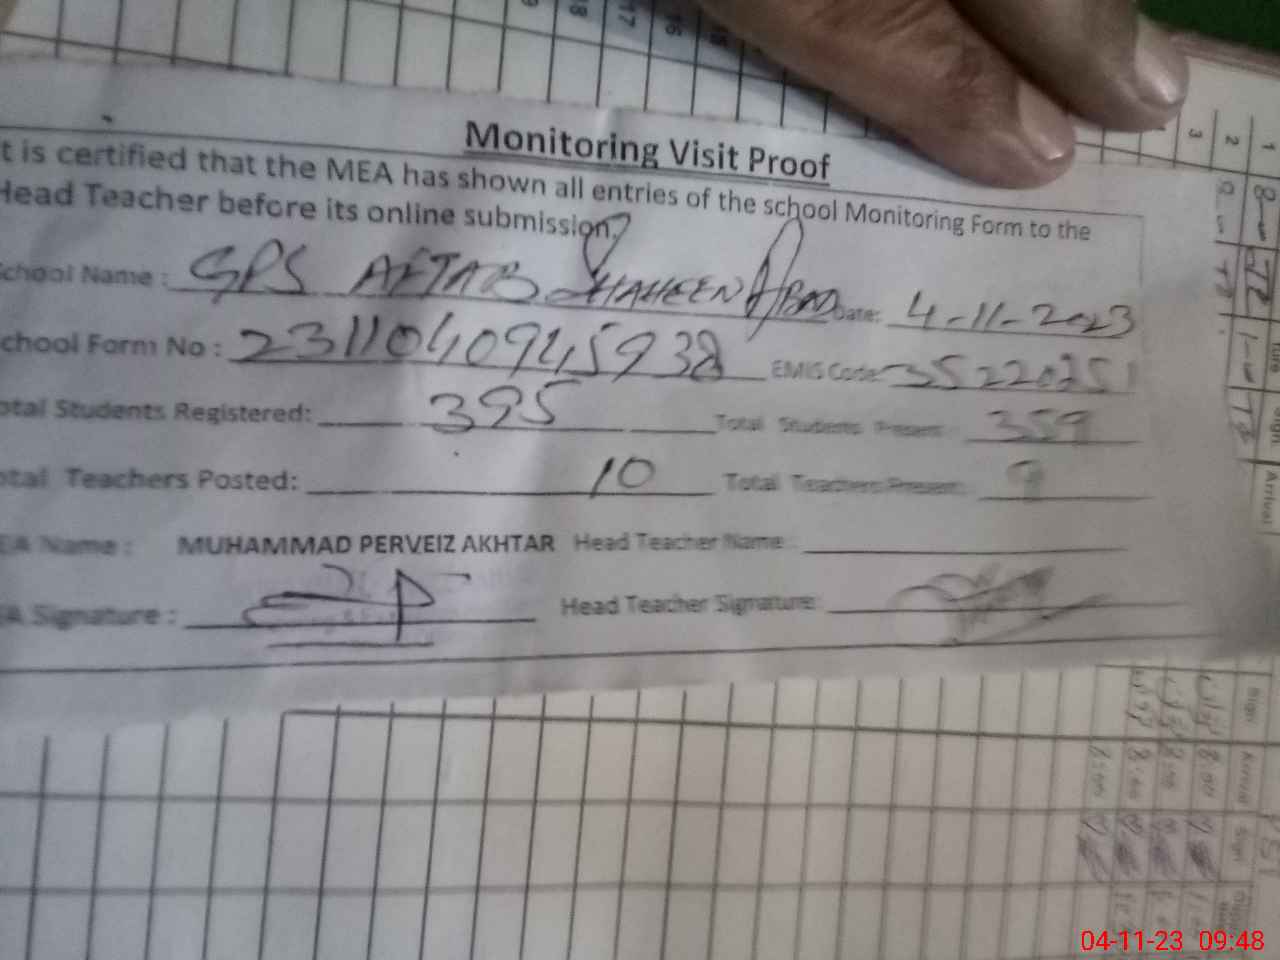 Monitoring Visit Proof
t is certified that the MEA has shown all entries of the school Monitoring Form to the
Head Teacher before its online submission.
chool Name : GPS AFTAB SHAHEEN ABAD Date: 4-11-2023
chool Form No : 231104094 5938 EMIS Code: 35220251
otal Students Registered: 395 Total Students Present: 359
otal Teachers Posted: 10 Total Teachers Present: 9
EA Name : MUHAMMAD PERVEIZ AKHTAR Head Teacher Name :
EA Signature : Head Teacher Signature:
18
17
16
15
3
2
1
Arrival
Sign
Arrival
Sign
04-11-23 09:48